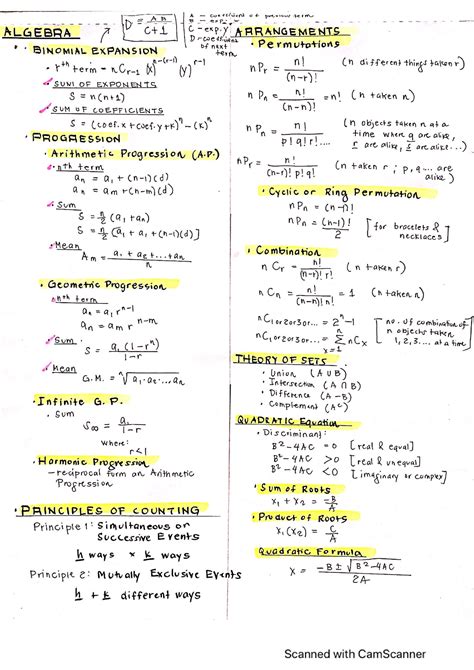 ALGEBRA
D = AB / C+1
A - coefficient of previous term
B - exp. x
C - exp. y
D - coefficient of next term
• BINOMIAL EXPANSION
• rᵗʰ term = nCr-1 (x)ⁿ⁻⁽ʳ⁻¹⁾ (y)ʳ⁻¹
SUM OF EXPONENTS
S = n(n+1)
SUM OF COEFFICIENTS
S = (coef. x + coef. y + K)ⁿ - (K)ⁿ
• PROGRESSION
• Arithmetic Progression (A.P.)
• nth term
aₙ = a₁ + (n-1)(d)
aₙ = aₘ + (n-m)(d)
• Sum
S = n/2 (a₁ + aₙ)
S = n/2 [a₁ + a₁ + (n-1)(d)]
• Mean
Aₘ = a₁ + a₂ + ... + aₙ / n
• Geometric Progression
• nth term
aₙ = a₁ rⁿ⁻¹
aₙ = aₘ rⁿ⁻ᵐ
• Sum
S = a₁ (1-rⁿ) / 1-r
• Mean
G.M. = ⁿ√a₁·a₂...aₙ
• Infinite G.P.
• Sum
S∞ = a₁ / 1-r
where:
r<1
• Harmonic Progression
- reciprocal form on Arithmetic
Progression
• PRINCIPLES OF COUNTING
Principle 1: Simultaneous or
Successive Events
h ways × k ways
Principle 2: Mutually Exclusive Events
h + k different ways
ARRANGEMENTS
• Permutations
nPr = n! / (n-r)! (n different things taken r)
nPn = n! / (n-n)! = n! (n taken n)
nPn = n! / p! q! r! ... (n objects taken n at a
time where q are alike,
r are alike, s are alike...)
nPr = n! / (n-r)! p! q! (n taken r; p, q... are
alike)
• Cyclic or Ring Permutation
nPn = (n-1)!
nPn = (n-1)! / 2 [for bracelets &
necklaces]
• Combination
nCr = n! / (n-r)! r! (n taken r)
nCn = n! / (n-n)! n! = 1 (n taken n)
nC1 or 2 or 3 or ... = 2ⁿ-1
nC1 or 2 or 3 or ... = Σ nCx
n
x=1
[no. of combination of
n objects taken
1, 2, 3.... at a time]
THEORY OF SETS
• Union (A ∪ B)
• Intersection (A ∩ B)
• Difference (A - B)
• Complement (Aᶜ)
QUADRATIC Equation
• Discriminant:
B²-4AC = 0 [real & equal]
B²-4AC > 0 [real & unequal]
B²-4AC < 0 [imaginary or complex]
• Sum of Roots
x₁ + x₂ = -B/A
• Product of Roots
x₁(x₂) = C/A
Quadratic Formula
x = -B ± √B²-4AC / 2A
Scanned with CamScanner